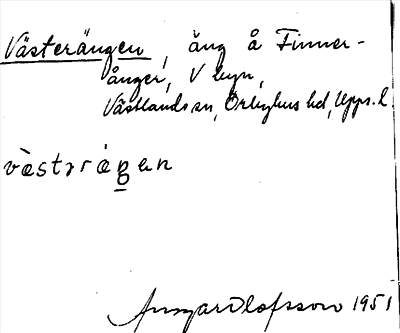 Västerängen, äng å Finner-
ånger, V byn,
Västlands sn, Örbyhus hd, Upps. l.
Ansgar Olofsson 1951